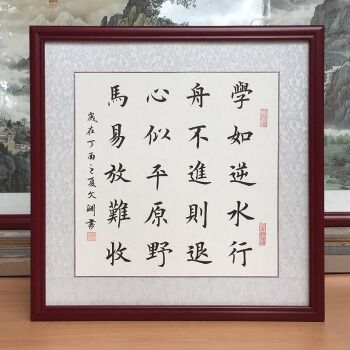 學如逆水行
舟不進則退
心似平原野
馬易放難收
歲在丁酉之夏文淵書